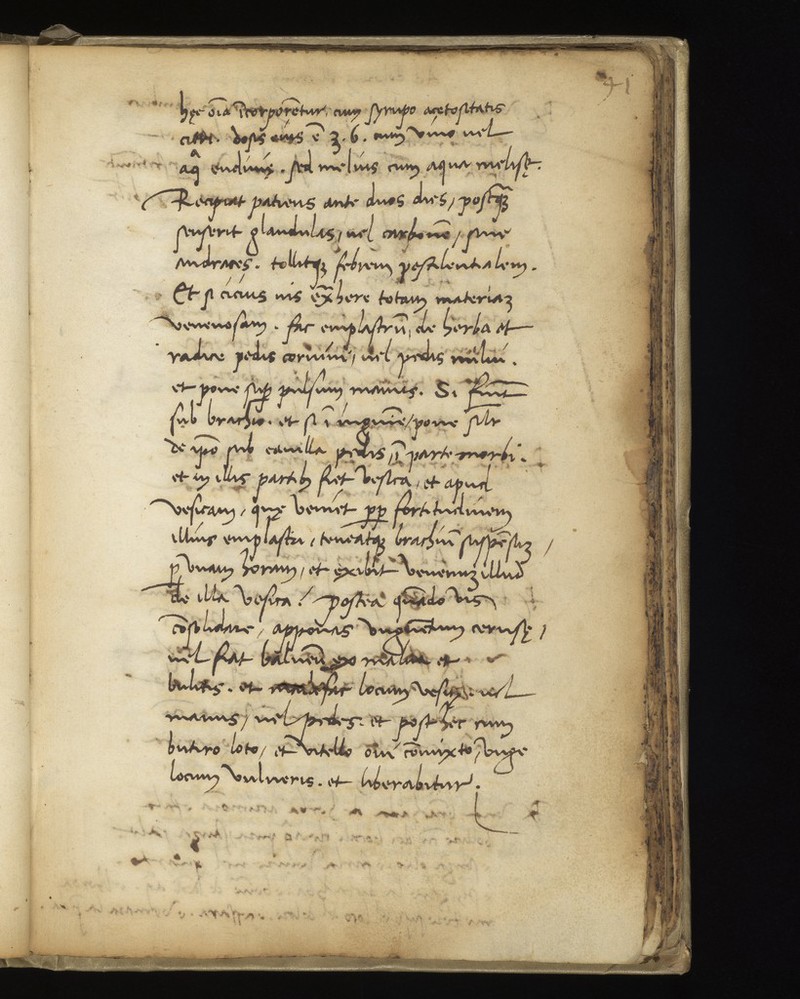 41
hęc oĩa ĩcorporẽtur cum syrupo acetositatis
citri. dosis eius ẽ ʒ. 6. cum vino vel
aqͣ endiuię. sed melius cum aqua melisę.
Recipiat patiens ante duos dies, postqͣʒ
senserit glandulas, vel carbonẽ, siue
andraces. tollitqʒ febrem pestilentialem.
Et si cicius vis extͣhere totam materiaʒ
venenosam. fac emplastrũ, de herba et
radice pedis coruini, vel pedis milui.
et pone suꝑ pulsum manus. Si
sub brachio. et si ĩ inguine, pone silr
de ip̃o sub cauilla pedis, ĩ parte morbi.
et in illis partibȝ fiet vesica, et apud
vesicam, quę veniet ꝓp fortitudinem
illius emplastri, teneatqʒ brachiũ suspensuʒ,
ꝑ vnam horam, et exibit venenuʒ illud
de illa vesica! postea quãdo vis
cõsolidare, apponas vnguẽtum cerusę,
vel fiat balneũ et
bulitis. et locum vesicę vel
manus, vel pedes. et post hęc cum
butiro loto, et vitello oui cõmixto, vnge
locum vulneris. et liberabitur.